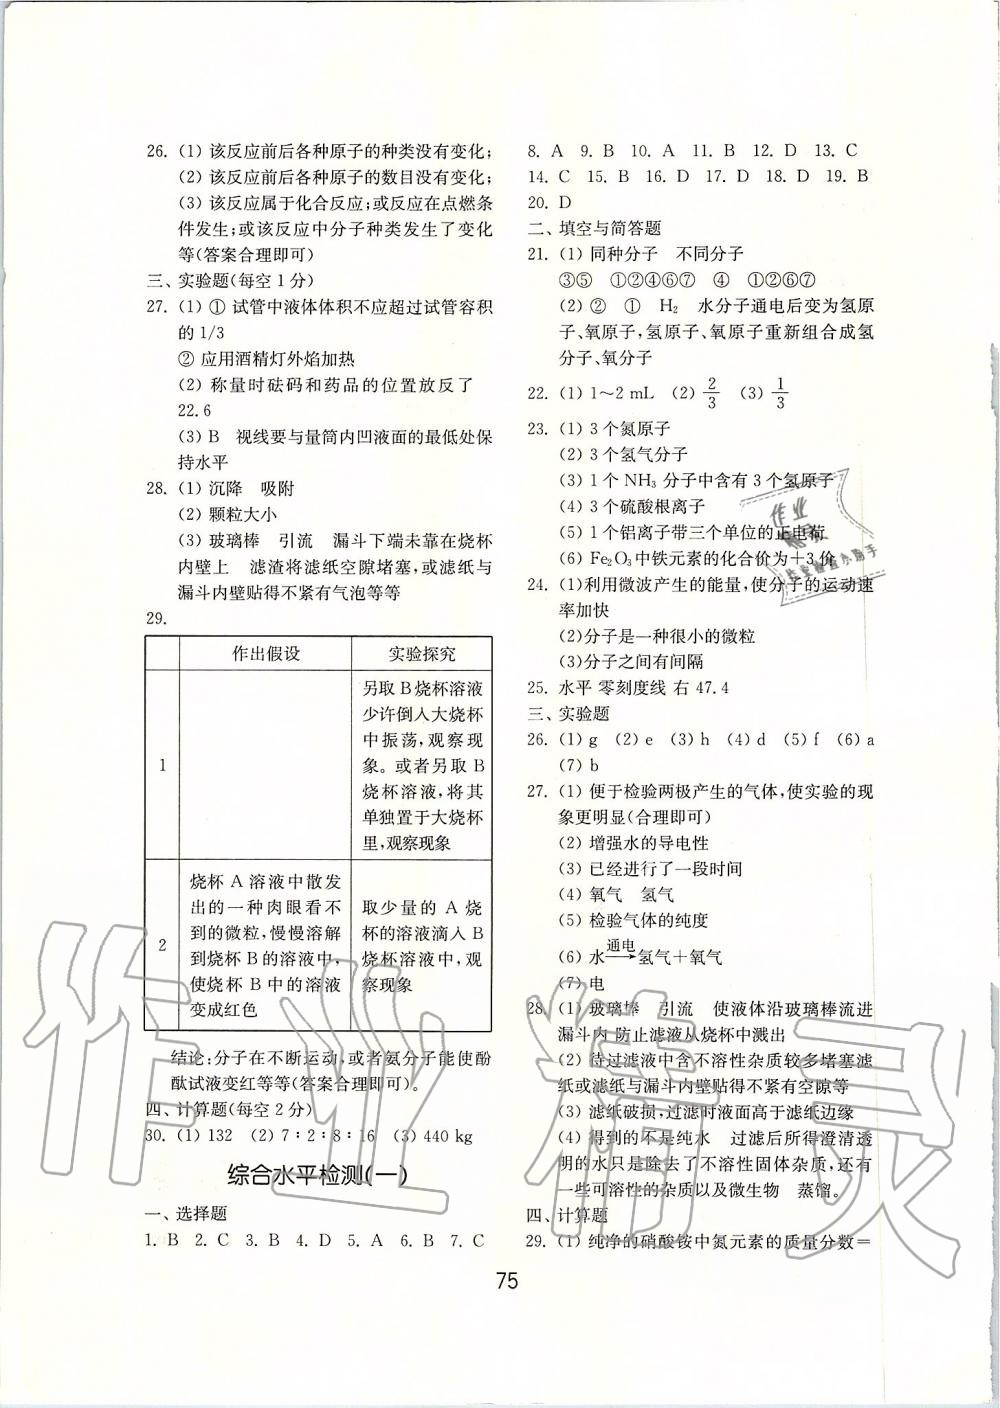 26. (1) 该反应前后各种原子的种类没有变化;
(2) 该反应前后各种原子的数目没有变化;
(3) 该反应属于化合反应;或反应在点燃条
件发生;或该反应中分子种类发生了变化
等(答案合理即可)
三、实验题(每空1分)
27. (1) ① 试管中液体体积不应超过试管容积
的 1/3
② 应用酒精灯外焰加热
(2) 称量时砝码和药品的位置放反了
22.6
(3) B 视线要与量筒内凹液面的最低处保
持水平
28. (1) 沉降 吸附
(2) 颗粒大小
(3) 玻璃棒 引流 漏斗下端未靠在烧杯
内壁上 滤渣将滤纸空隙堵塞,或滤纸与
漏斗内壁贴得不紧有气泡等等
29.
作出假设 实验探究
1
另取 B 烧杯溶液
少许倒入大烧杯
中振荡,观察现
象。或者另取 B
烧杯溶液,将其
单独置于大烧杯
里,观察现象
2
烧杯 A 溶液中散发
出的一种肉眼看不
到的微粒,慢慢溶解
到烧杯 B 的溶液中,
使烧杯 B 中的溶液
变成红色
取少量的 A 烧
杯的溶液滴入 B
烧杯溶液中,观
察现象
结论:分子在不断运动,或者氨分子能使酚
酞试液变红等等(答案合理即可)。
四、计算题(每空2分)
30. (1) 132 (2) 7∶2∶8∶16 (3) 440 kg
综合水平检测(一)
一、选择题
1. B 2. C 3. B 4. D 5. A 6. B 7. C
8. A 9. B 10. A 11. B 12. D 13. C
14. C 15. B 16. D 17. D 18. D 19. B
20. D
二、填空与简答题
21. (1) 同种分子 不同分子
③⑤ ①②④⑥⑦ ④ ①②⑥⑦
(2) ② ① H₂ 水分子通电后变为氢原
子、氧原子,氢原子、氧原子重新组合成氢
分子、氧分子
22. (1) 1～2 mL (2) 2/3 (3) 1/3
23. (1) 3 个氮原子
(2) 3 个氢气分子
(3) 1 个 NH₃ 分子中含有 3 个氢原子
(4) 3 个硫酸根离子
(5) 1 个铝离子带三个单位的正电荷
(6) Fe₂O₃中铁元素的化合价为＋3 价
24. (1)利用微波产生的能量,使分子的运动速
率加快
(2)分子是一种很小的微粒
(3)分子之间有间隔
25. 水平 零刻度线 右 47.4
三、实验题
26. (1) g (2) e (3) h (4) d (5) f (6) a
(7) b
27. (1) 便于检验两极产生的气体,使实验的现
象更明显(合理即可)
(2) 增强水的导电性
(3) 已经进行了一段时间
(4) 氧气 氢气
(5) 检验气体的纯度
(6) 水 通电→ 氢气＋氧气
(7) 电
28. (1) 玻璃棒 引流 使液体沿玻璃棒流进
漏斗内 防止滤液从烧杯中溅出
(2) 待过滤液中含不溶性杂质较多堵塞滤
纸或滤纸与漏斗内壁贴得不紧有空隙等
(3) 滤纸破损,过滤时液面高于滤纸边缘
(4) 得到的不是纯水 过滤后所得澄清透
明的水只是除去了不溶性固体杂质,还有
一些可溶性的杂质以及微生物 蒸馏。
四、计算题
29. (1) 纯净的硝酸铵中氮元素的质量分数＝
75
作业精灵
作业